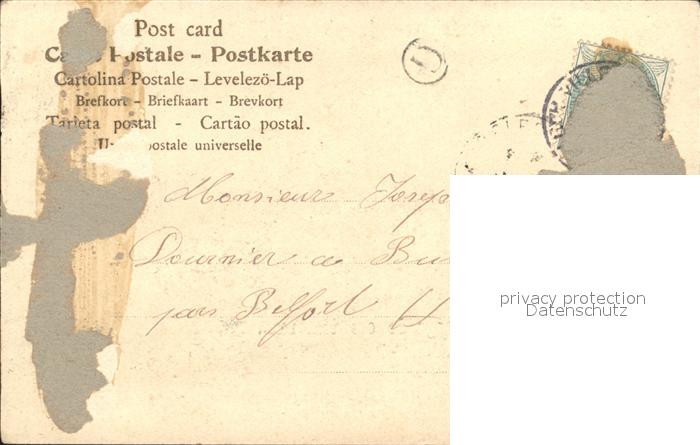 Post card
Postale – Postkarte
Cartolina Postale – Levelezö-Lap
Brefkort – Briefkaart – Brevkort
Tarjeta postal - Cartão postal.
postale universelle
U
Monsieur
Dournier a
par Belfort
privacy protection
Datenschutz